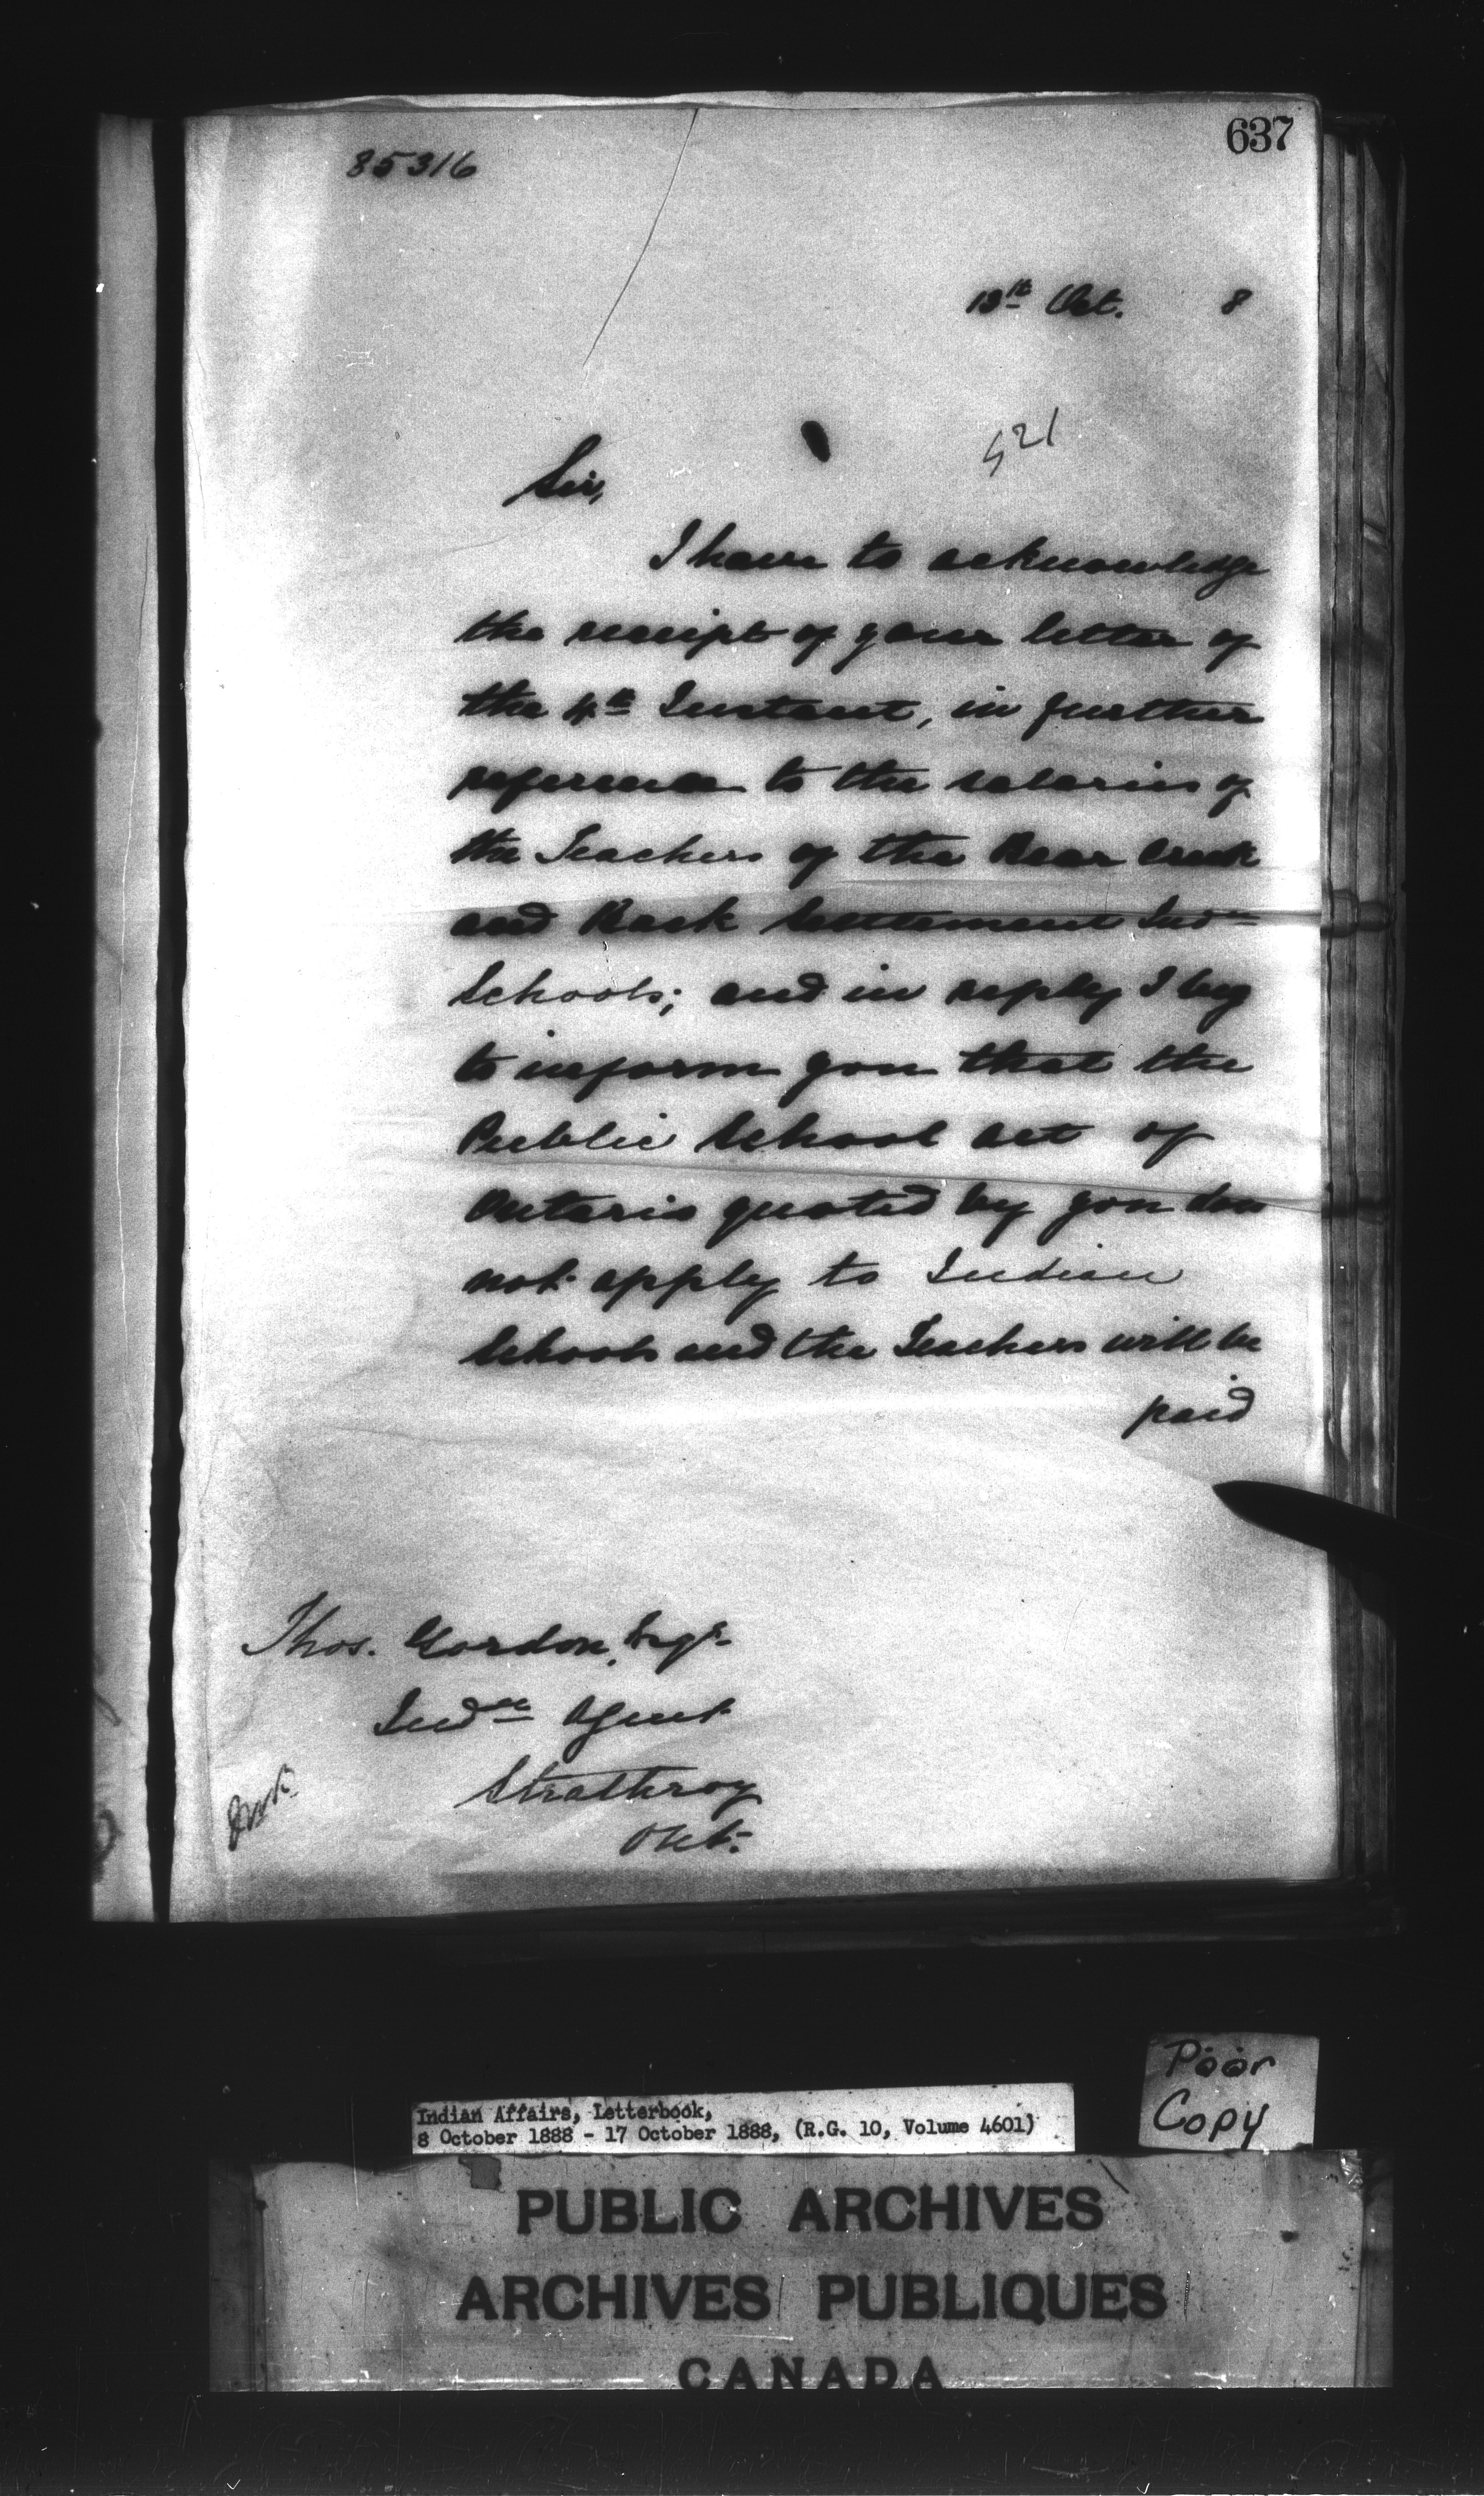 637
85316
13th Oct. 8
521
Sir,
I have to acknowledge
the receipt of your letter of
the 4th Instant, in further
reference to the salaries of
the Teachers of the Bear Creek
and Back Settlement Indn
Schools; and in reply I beg
to inform you that the
Public School act of
Ontario quoted by you does
not apply to Indian
Schools and the Teachers will be
paid
Thos. Gordon, Esqr.
Indn Agent
Strathroy
Ont.
Poor
Copy
Indian Affairs, Letterbook,
8 October 1888 - 17 October 1888, (R.G. 10, Volume 4601)
PUBLIC ARCHIVES
ARCHIVES PUBLIQUES
CANADA